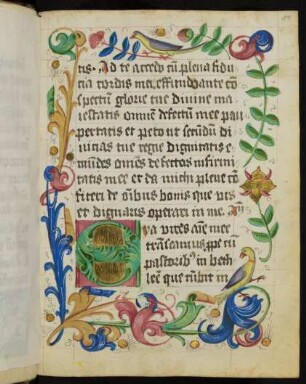 tis. Ad te accedo cū plena fidu
cia cordis mei effundante cō
spectū glorie tue divine ma
iestatis omnē defectū mee pau
pertatis et peto ut secūdū di
vitias tue regie dignitatis e
mūdes omēs defectos infirmi
tatis mee et da michi plene cō
fiteri de oībus bonis que vis
et dignaris operari in me. Am
va vires aīe mee
transeamus ꝑpetu
pastoreb⁹ in beth
leē que nūbit in